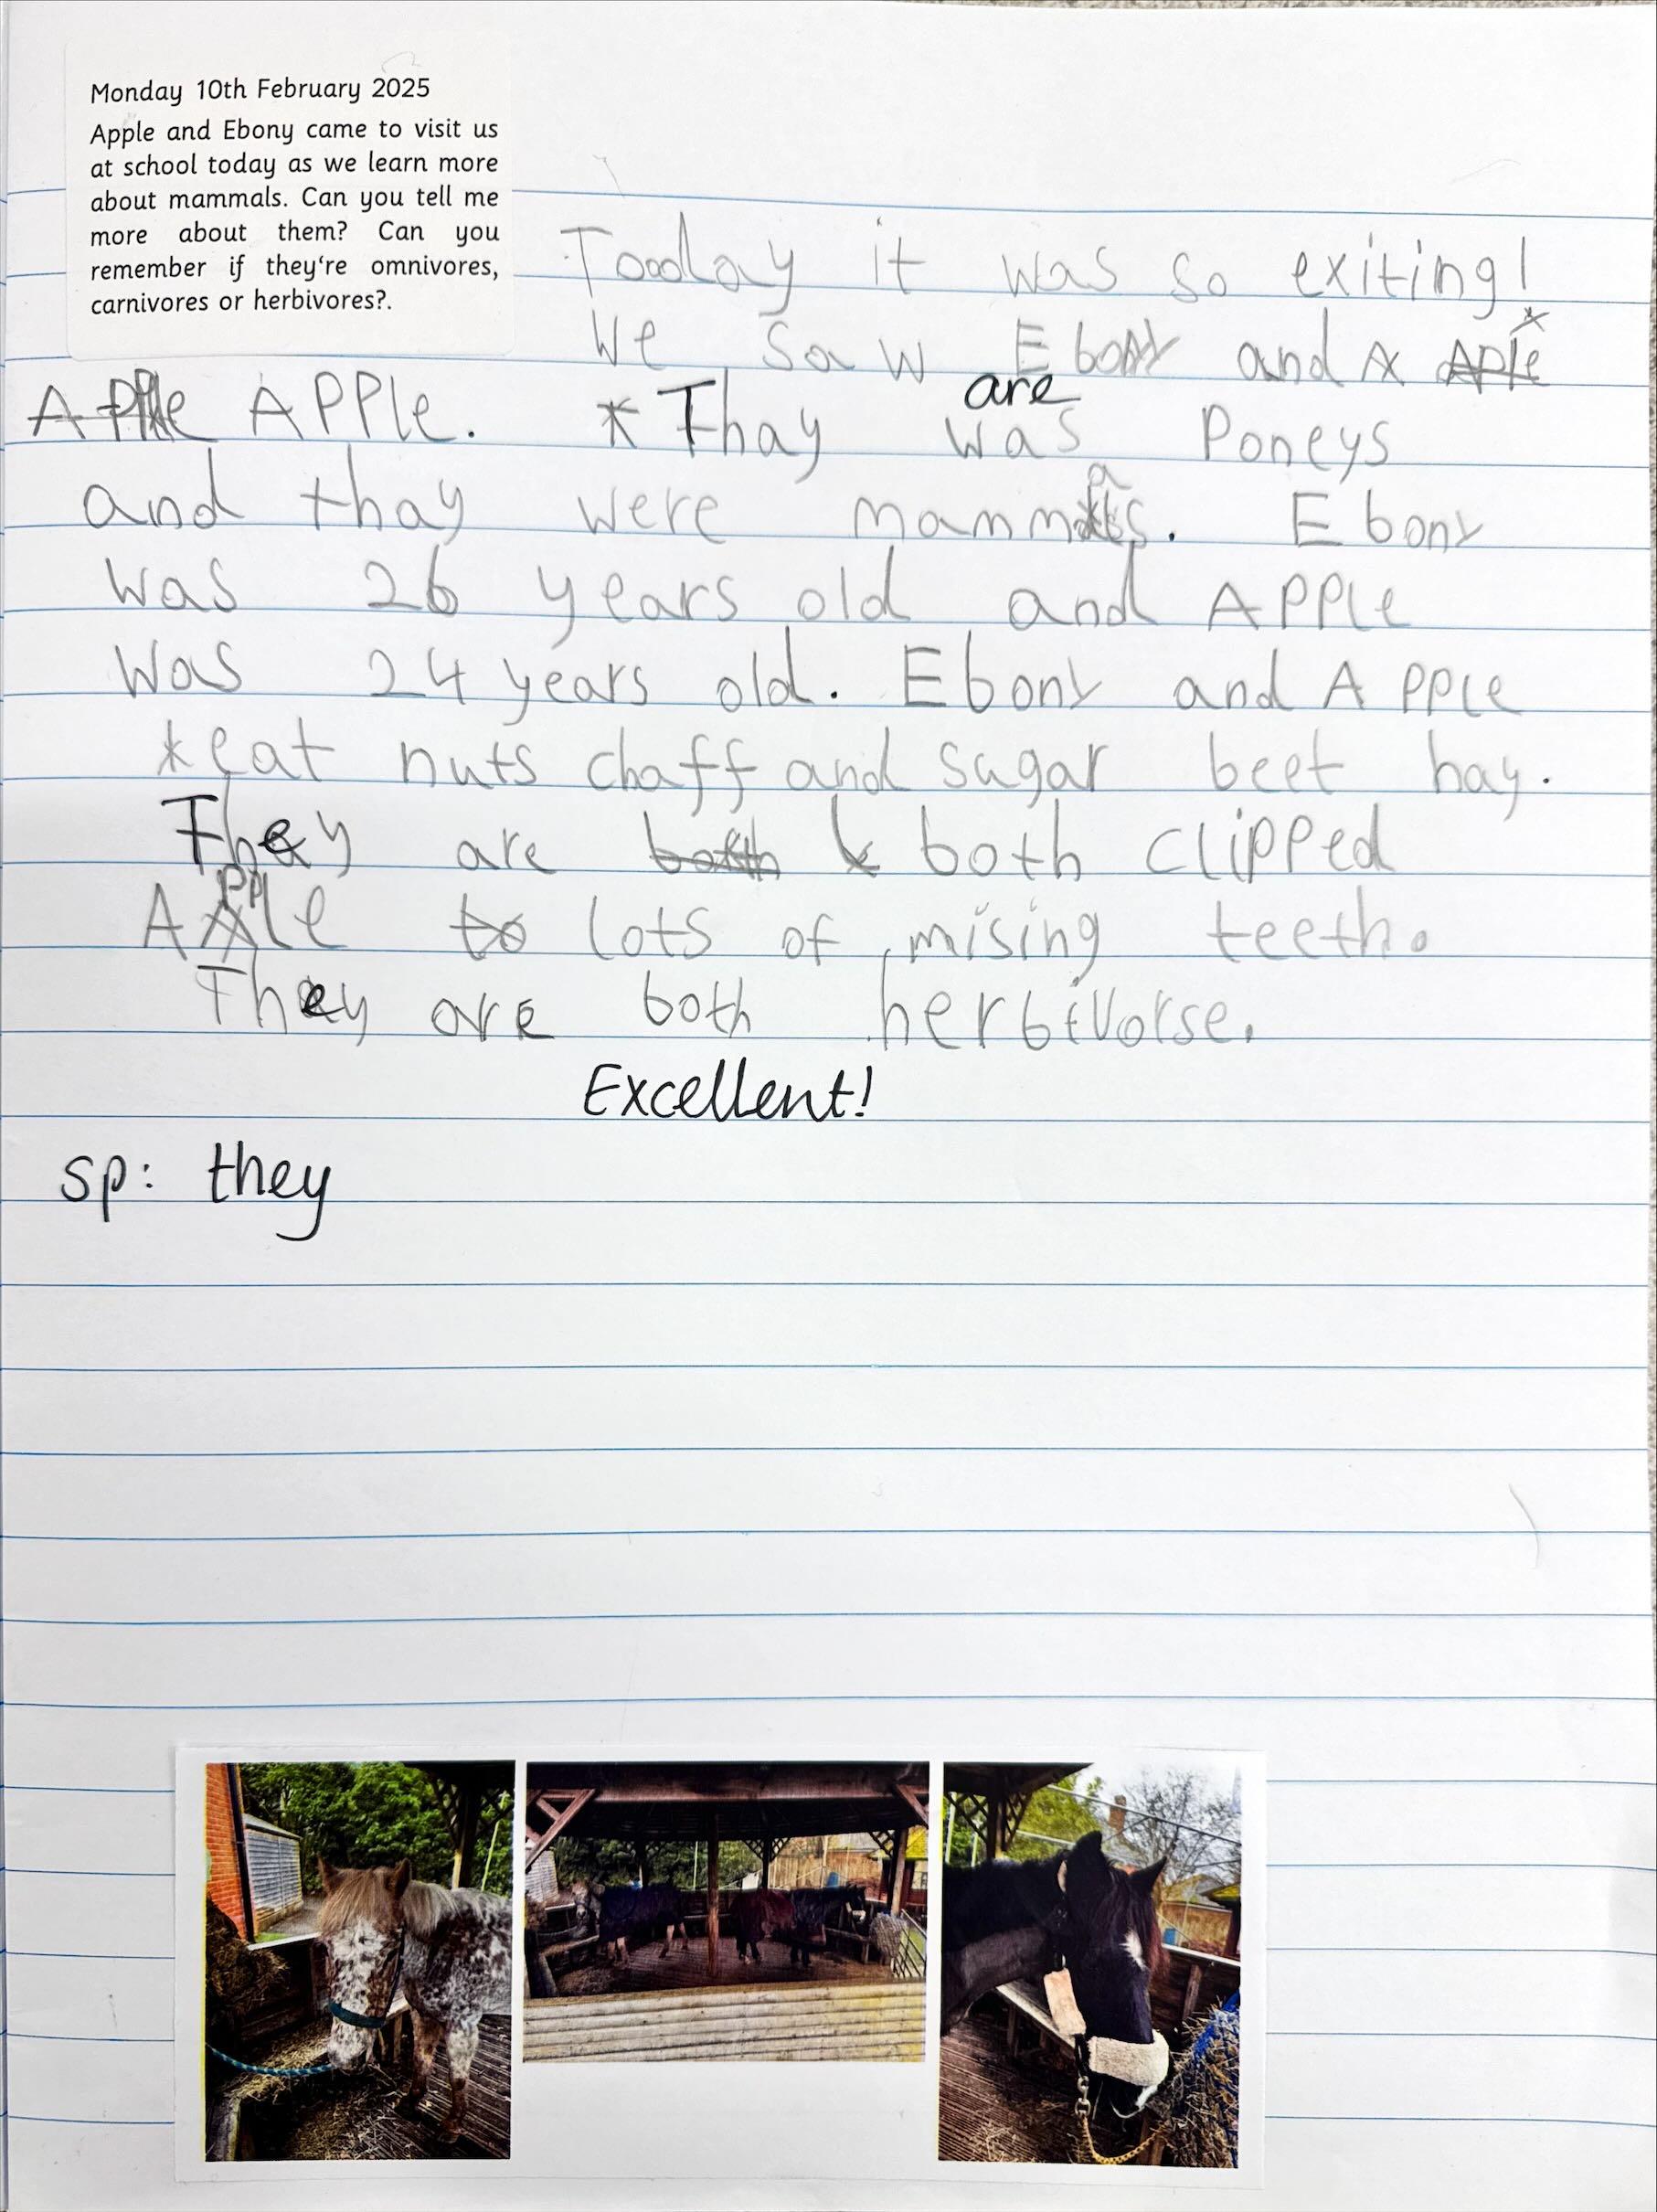 Monday 10th February 2025
Apple and Ebony came to visit us
at school today as we learn more
about mammals. Can you tell me
more about them? Can you
remember if they're omnivores,
carnivores or herbivores?.
Today it was so exiting!
We saw Ebony and A Aple
Apple APPle. * Thay was Poneys
are
and thay were mammals. Ebony
a
was 26 years old and APPle
was 24 years old. Ebony and APPle
*eat nuts chaff and sugar beet hay.
They are both b both clipped
APPle to lots of mising teeth.
They are both herbivorse.
Excellent!
sp: they